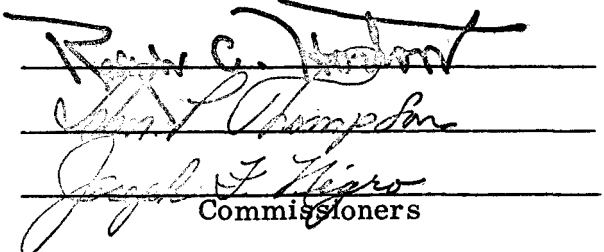 C.
John P Thompson
Joseph F Nigro
Commissioners